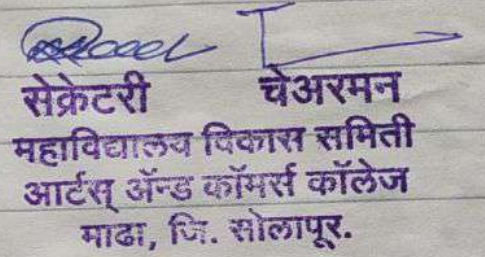 सेक्रेटरी चेअरमन
महाविद्यालय विकास समिती
आर्टस् ॲन्ड कॉमर्स कॉलेज
माढा, जि. सोलापूर.